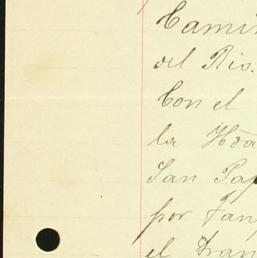 Cami
del Rio.
Con el
la Hda
San Pa
por Tan
el Tran